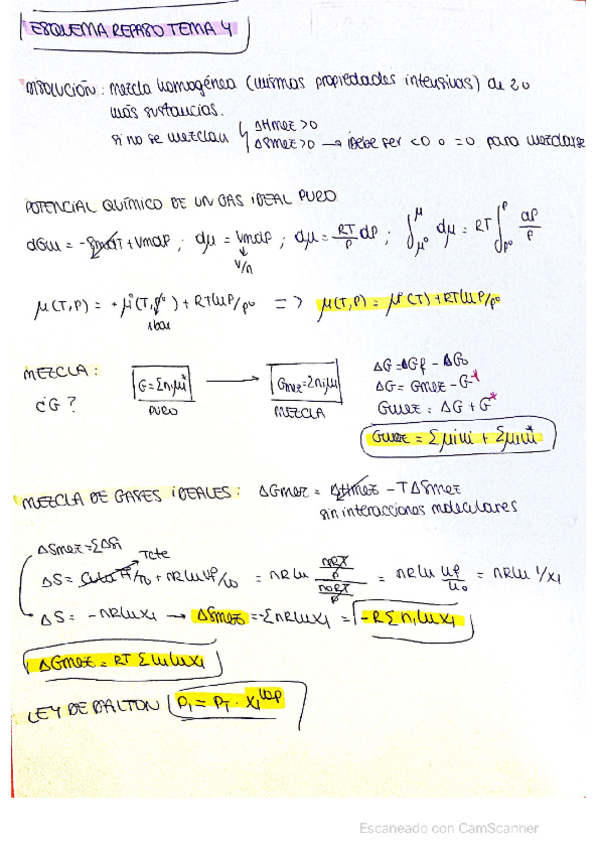 ESQUEMA REPASO TEMA 4
DISOLUCIÓN: mezcla homogénea (mismas propiedades intensivas) de 2 o
más sustancias.
si no se mezclan { ΔHmez >0
ΔSmez >0 → debe ser <0 o =0 para mezclarse
POTENCIAL QUÍMICO DE UN GAS IDEAL PURO
dGm = -SmdT + VmdP ; dμ = VmdP ; dμ = RT/P dP ; ∫μ°^μ dμ = RT ∫P°^P dP/P
V/n
μ(T,P) = + μ°(T,P°) + RT ln P/P° => μ(T,P) = μ°(T) + RT ln P/P°
1 bar
MEZCLA:
¿G?
G = Σniμi* → Gmez = Σniμi
PURO MEZCLA
ΔG = ΔGf - ΔG0
ΔG = Gmez - G*
Gmez = ΔG + G*
Gmez = Σμini + Σμini*
MEZCLA DE GASES IDEALES: ΔGmez = ΔHmez - TΔSmez
sin interacciones moleculares
ΔSmez = ΣΔSi
Tcte
ΔS = Tf/T0 + nR ln Vf/V0 = nR ln nRT/P / n0RT/P = nR ln nf/n0 = nR ln 1/x1
ΔS = -nR ln x1 → ΔSmez = -ΣnR ln x1 = -R Σ ni ln x1
ΔGmez = RT Σ ni ln x1
LEY DE DALTON P1 = PT · x1^vap
Escaneado con CamScanner